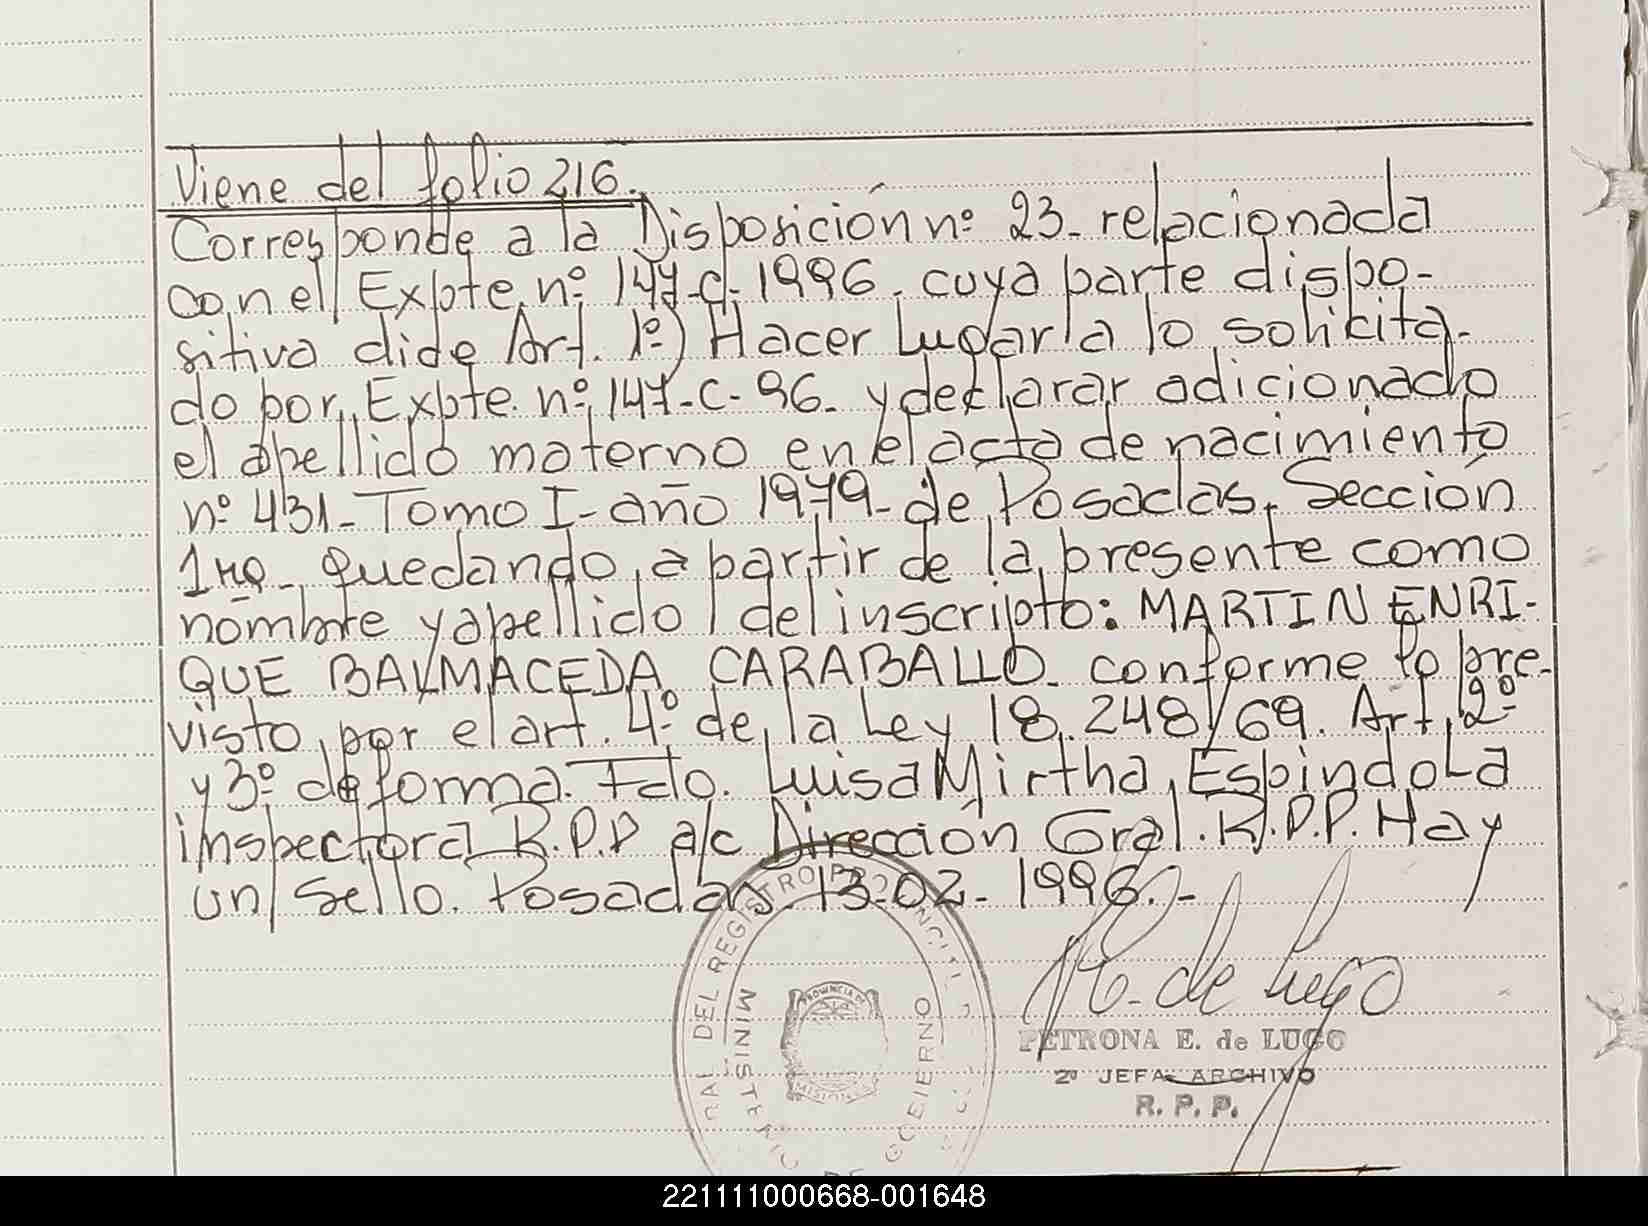 Viene del folio 216.
Corresponde a la Disposición nº 23- relacionada
con el Expte. nº 147-C-1996. cuya parte dispo-
sitiva dide Art. 1º) Hacer Lugar a lo solicita-
do por Expte. nº 147-C-96- y declarar adicionado
el apellido materno en el acta de nacimiento
nº 431- Tomo I- año 1979- de Posadas, Sección
1ra- quedando, a partir de la presente como
nombre y apellido del inscripto: MARTIN ENRI-
QUE BALMACEDA CARABALLO- conforme lo pre-
visto por el art. 4º de la Ley 18.248/69. Art. 2º
y 3º de forma. Fdo. Luisa Mirtha Espindola
inspectora R.P.P a/c Dirección Gral. R.P.P. Hay
un sello. Posadas 13-02-1996.-
P. E. de Lugo
PETRONA E. de LUGO
2º JEFA ARCHIVO
R. P. P.
RAL DEL REGISTRO PROVINCI
MINISTERIO DE GOBIERNO
PROVINCIA DE
MISIONES
221111000668-001648